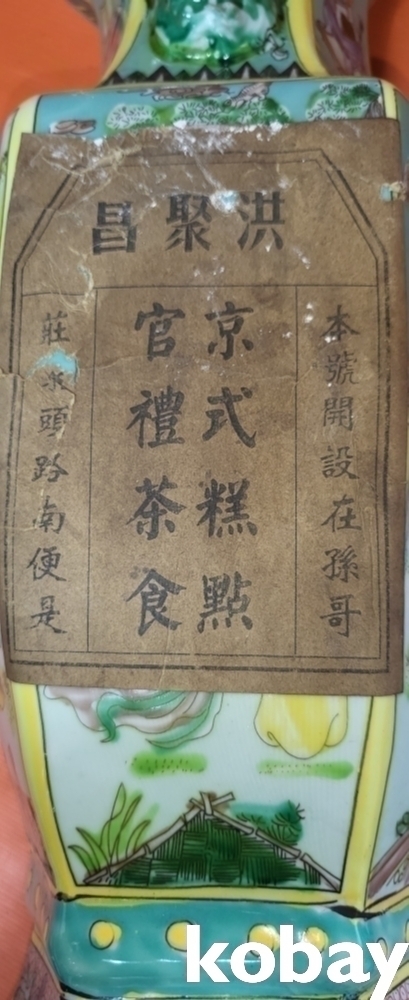 洪聚昌
本號開設在孫哥
京式糕點
官禮茶食
莊 頭路南便是
kobay